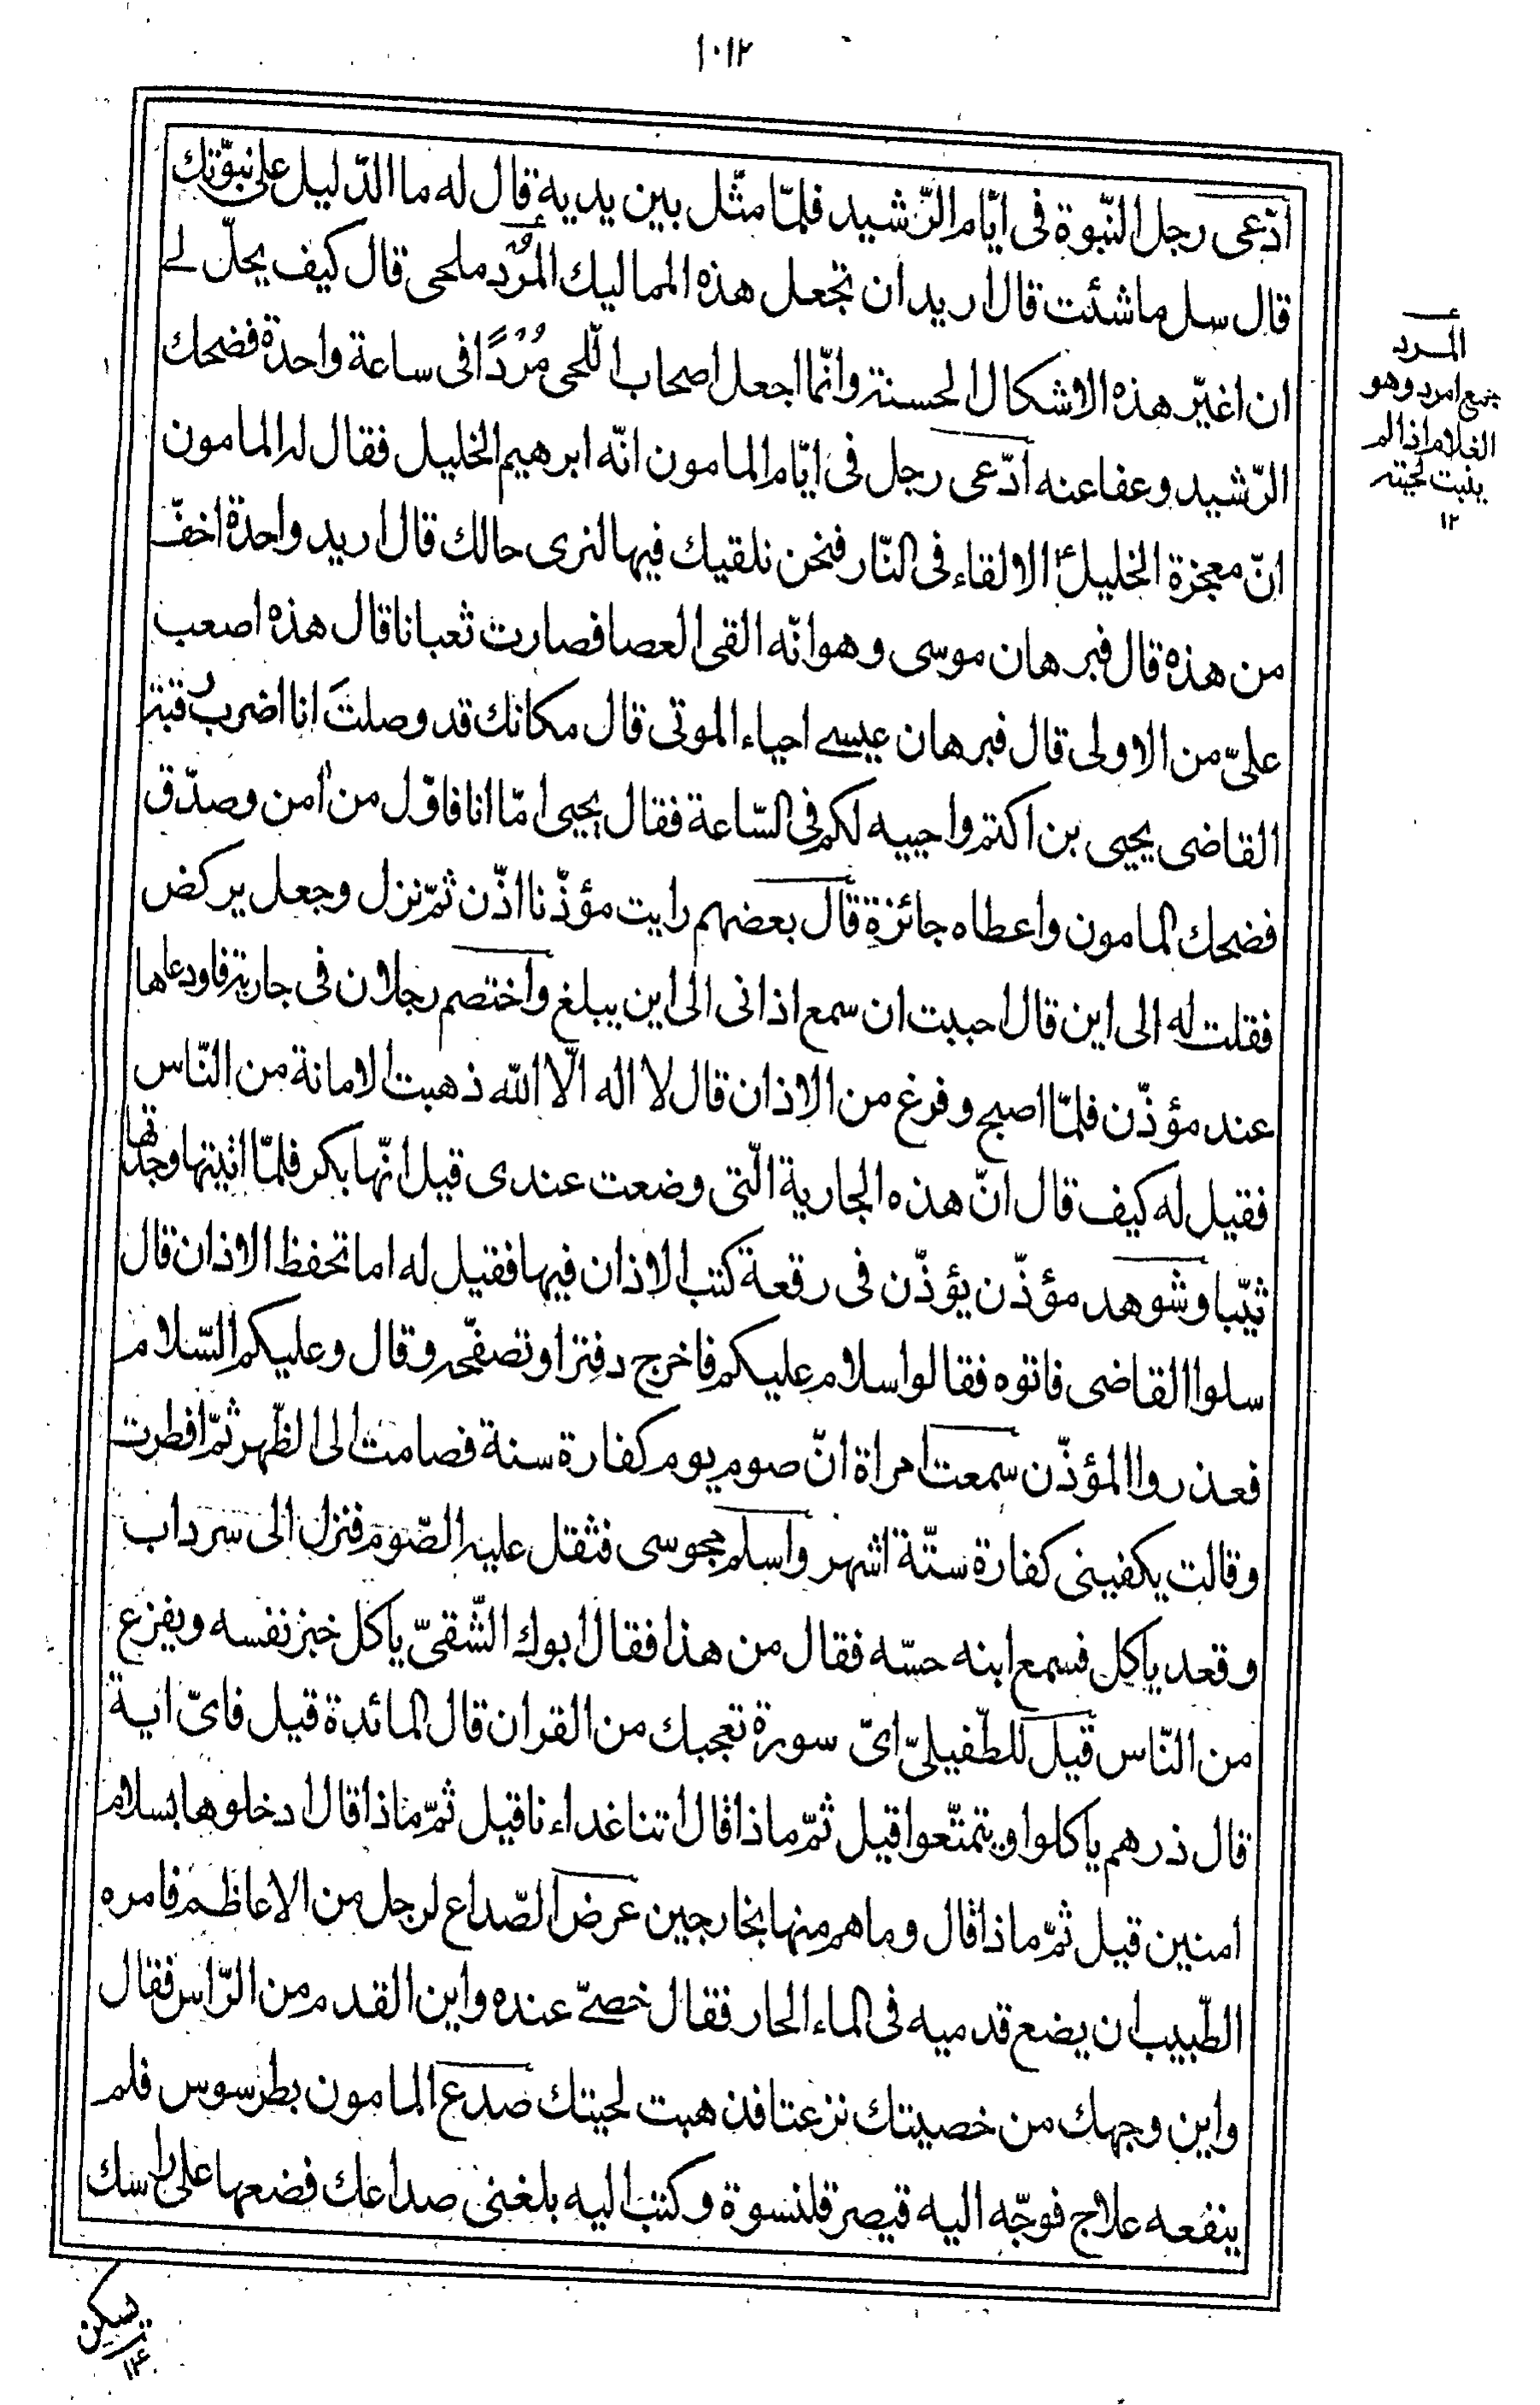 ١٠١٢
ادّعى رجل النّبوة فى ايّام الرّشيد فلمّا مثّل بين يديه قال له ما الدّليل على نبوّتك
قال سل ما شئت قال اريد ان تجعل هذه المماليك المُرْد ملحى قال كيف يحلّ لى
ان اغيّر هذه الاشكال الحسنة وانّما اجعل اصحاب اللّحى مُرْدًا فى ساعة واحدة فضحك
الرّشيد وعفا عنه ادّعى رجل فى ايّام المامون انّه ابرهيم الخليل فقال له المامون
انّ معجزة الخليلؑ الالقاء فى النّار فنحن نلقيك فيها لنرى حالك قال اريد واحدة اخفّ
من هذه قال فبرهان موسى وهو انّه القى العصا فصارت ثعبانا قال هذه اصعب
علىّ من الاولى قال فبرهان عيسے احياء الموتى قال مكانك قد وصلتَ انا اضرب رقبة
القاضى يحيى بن اكتم واحييه لكم فى السّاعة فقال يحيى امّا انا فاوّل من اٰمن وصدّق
فضحك المامون واعطاه جائزة قال بعضهم رايت مؤذّنا اذّن ثمّ نزل وجعل يركض
فقلت له الى اين قال احببت ان سمع اذانى الى اين يبلغ واختصم رجلان فى جارية فاودعاها
عند مؤذّن فلمّا اصبح وفرغ من الاذان قال لا اله الّا اللّه ذهبت الامانة من النّاس
فقيل له كيف قال انّ هذه الجارية الّتى وضعت عندى قيل انّها بكر فلمّا اتيتها وجدتها
ثيّبا وشوهد مؤذّن يؤذّن فى رقعة كتب الاذان فيها فقيل له اما تحفظ الاذان قال
سلوا القاضى فاتوه فقالوا سلام عليكم فاخرج دفترا وتصفّحه وقال وعليكم السّلام
فعذروا المؤذّن سمعت امراة انّ صوم يوم كفارة سنة فصامت الى الظّهر ثمّ افطرت
وقالت يكفينى كفارة ستّة اشهر واسلم مجوسى فثقل عليه الصّوم فنزل الى سرداب
وقعد ياكل فسمع ابنه حسّه فقال من هذا فقال ابوك الشّقىّ ياكل خبز نفسه ويفزع
من النّاس قيل للطّفيلىّ اىّ سورة تعجبك من القران قال المائدة قيل فاىّ اية
قال ذرهم ياكلوا ويتمتّعوا قيل ثمّ ماذا قال اتنا غداءنا قيل ثمّ ماذا قال ادخلوها بسلام
امنين قيل ثمّ ماذا قال وما هم منها بخارجين عرض الصّداع لرجل من الاعاظم فامره
الطّبيب ان يضع قدميه فى الماء الحار فقال خصىّ عنده واين القدم من الرّاس فقال
واين وجهك من خصيتك نزعتا فذهبت لحيتك صدع المامون بطرسوس فلم
ينفعه علاج فوجّه اليه قيصر قلنسوة وكتب اليه بلغنى صداعك فضعها على راسك
يسكن
المرد
جمع امرد وهو
الغلام اذا لم
ينبت لحيته
١٢